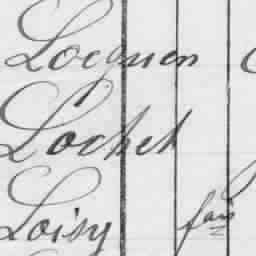 Loguen
Lochet
Loisy fais